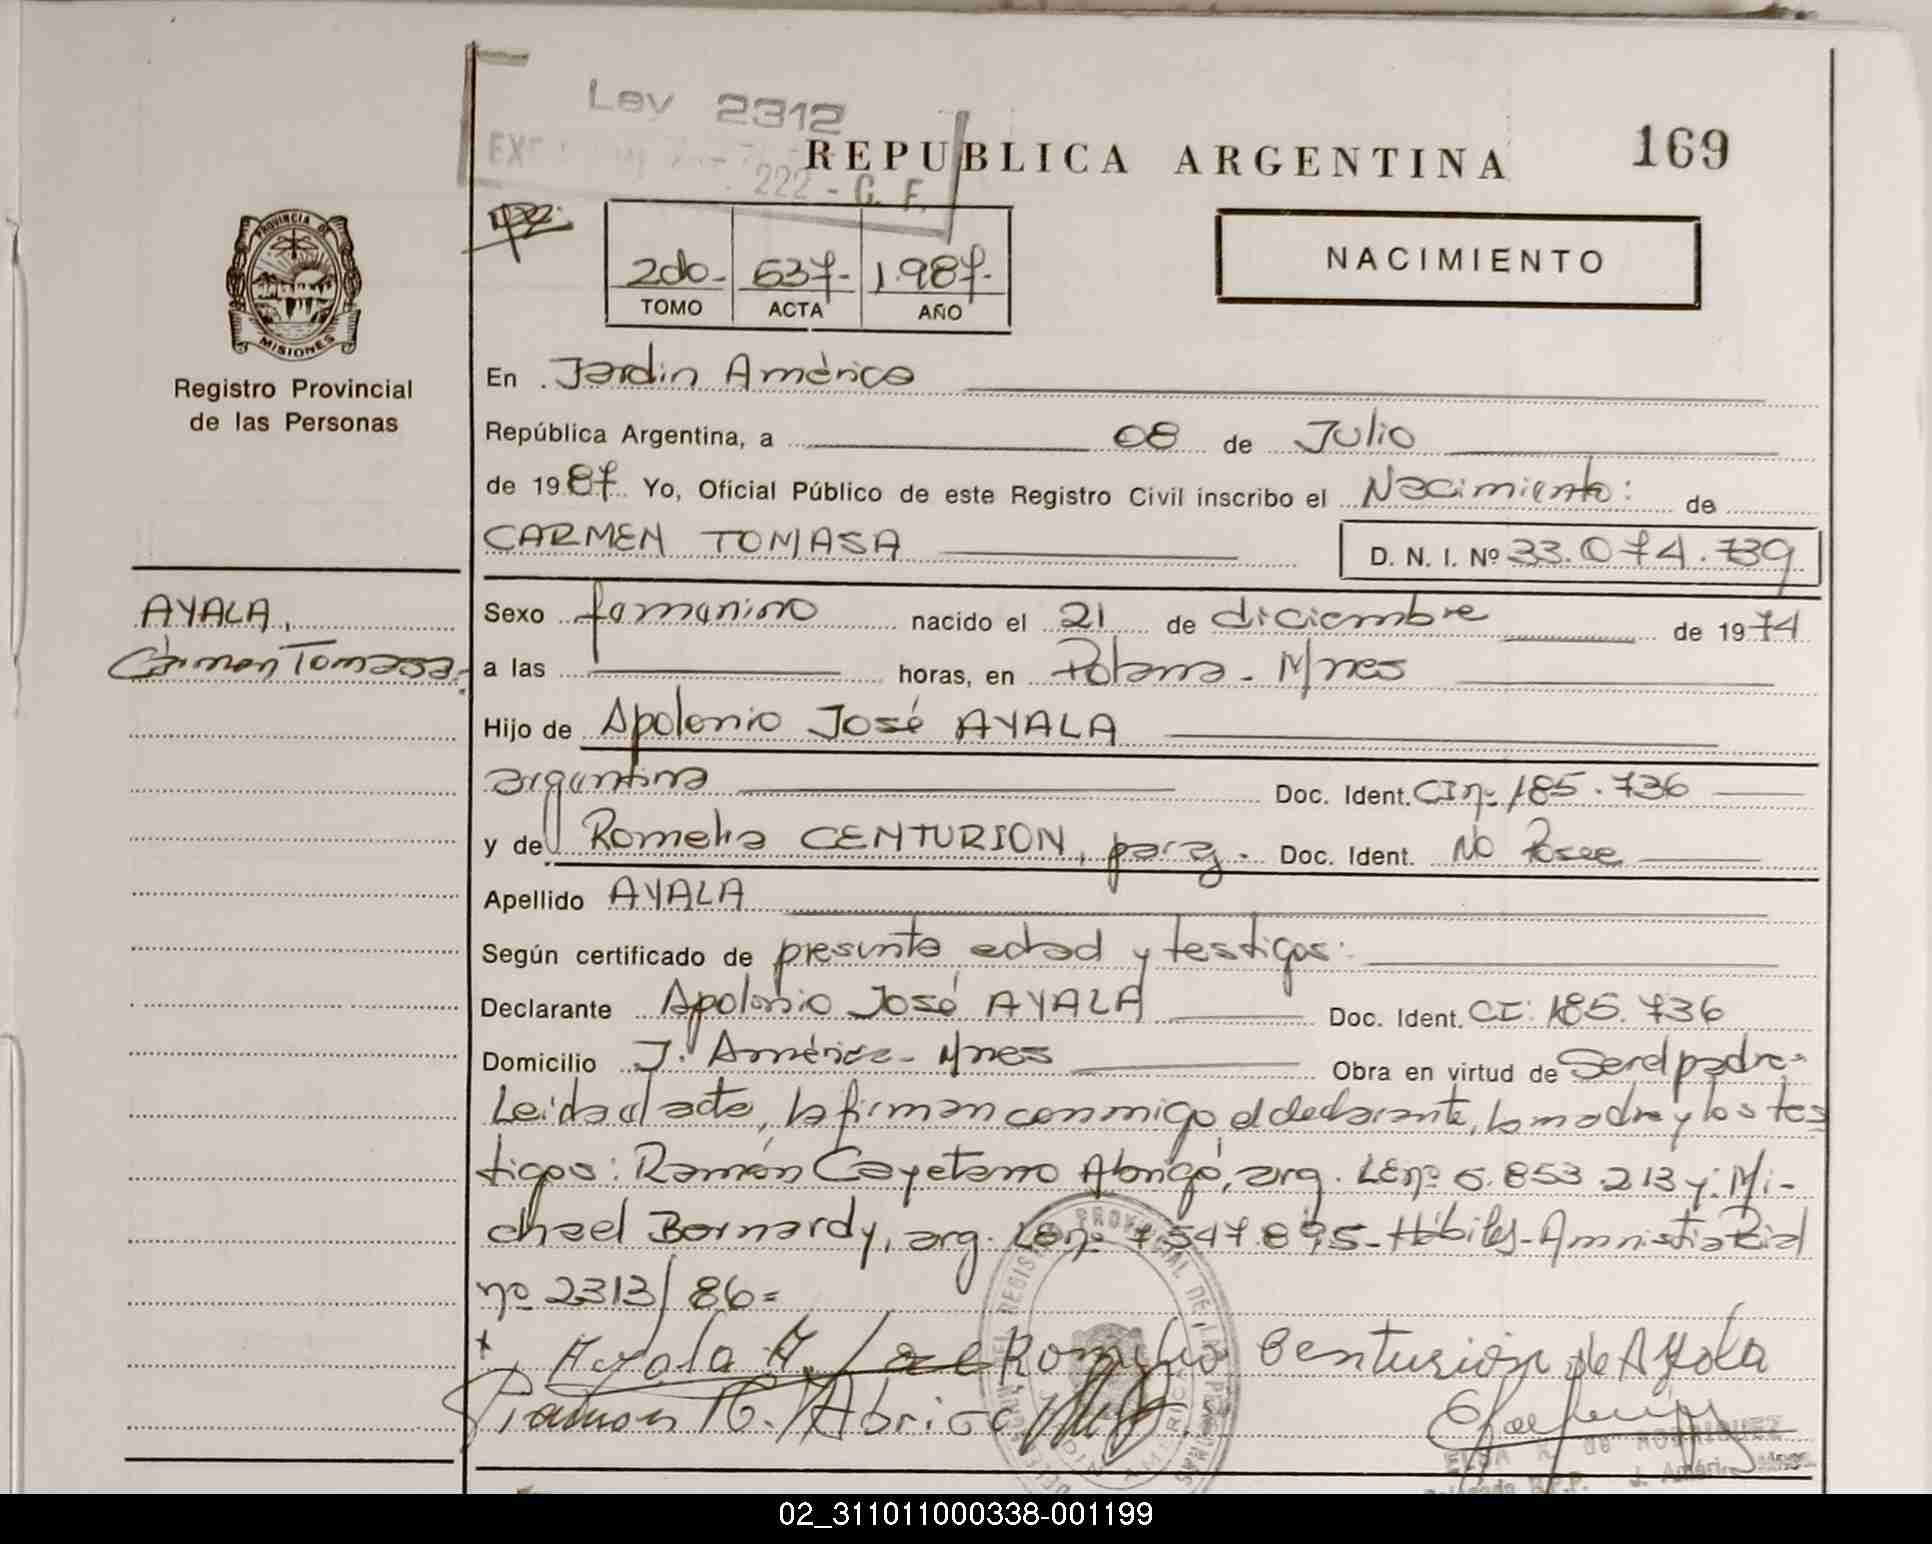 Ley 2312
REPUBLICA ARGENTINA
169
222 - G. F.
PROVINCIA DE
MISIONES
Registro Provincial
de las Personas
2do- 637- 1.987-
TOMO ACTA AÑO
NACIMIENTO
En Jardín América
República Argentina, a 08 de Julio
de 1987 Yo, Oficial Público de este Registro Civil inscribo el Nacimiento: de
CARMEN TOMASA D. N. I. Nº 33.074.739
AYALA,
Carmen Tomasa.
Sexo femenino nacido el 21 de diciembre de 1974
a las horas, en Polana - Mnes
Hijo de Apolonio José AYALA
argentina Doc. Ident. CI nº 185.736
y de Romelia CENTURION, parag. Doc. Ident. No Posee
Apellido AYALA
Según certificado de presunta edad y testigos:
Declarante Apolonio José AYALA Doc. Ident. CI: 185.736
Domicilio J. América - Mnes Obra en virtud de Ser el padre-
Leida el acta, la firman conmigo el declarante, la madre y los tes
tigos: Ramón Cayetano Abrigo, arg. LE nº 5.853.213 y: Mi-
chael Bernardy, arg. LE nº 7547.895- Hábiles- Amnistia Rcial
nº 2313/86=
Ayala A. José Romelia Centurión de Ayala
Ramon C. Abrigo
DE RODRIGUEZ
02_311011000338-001199